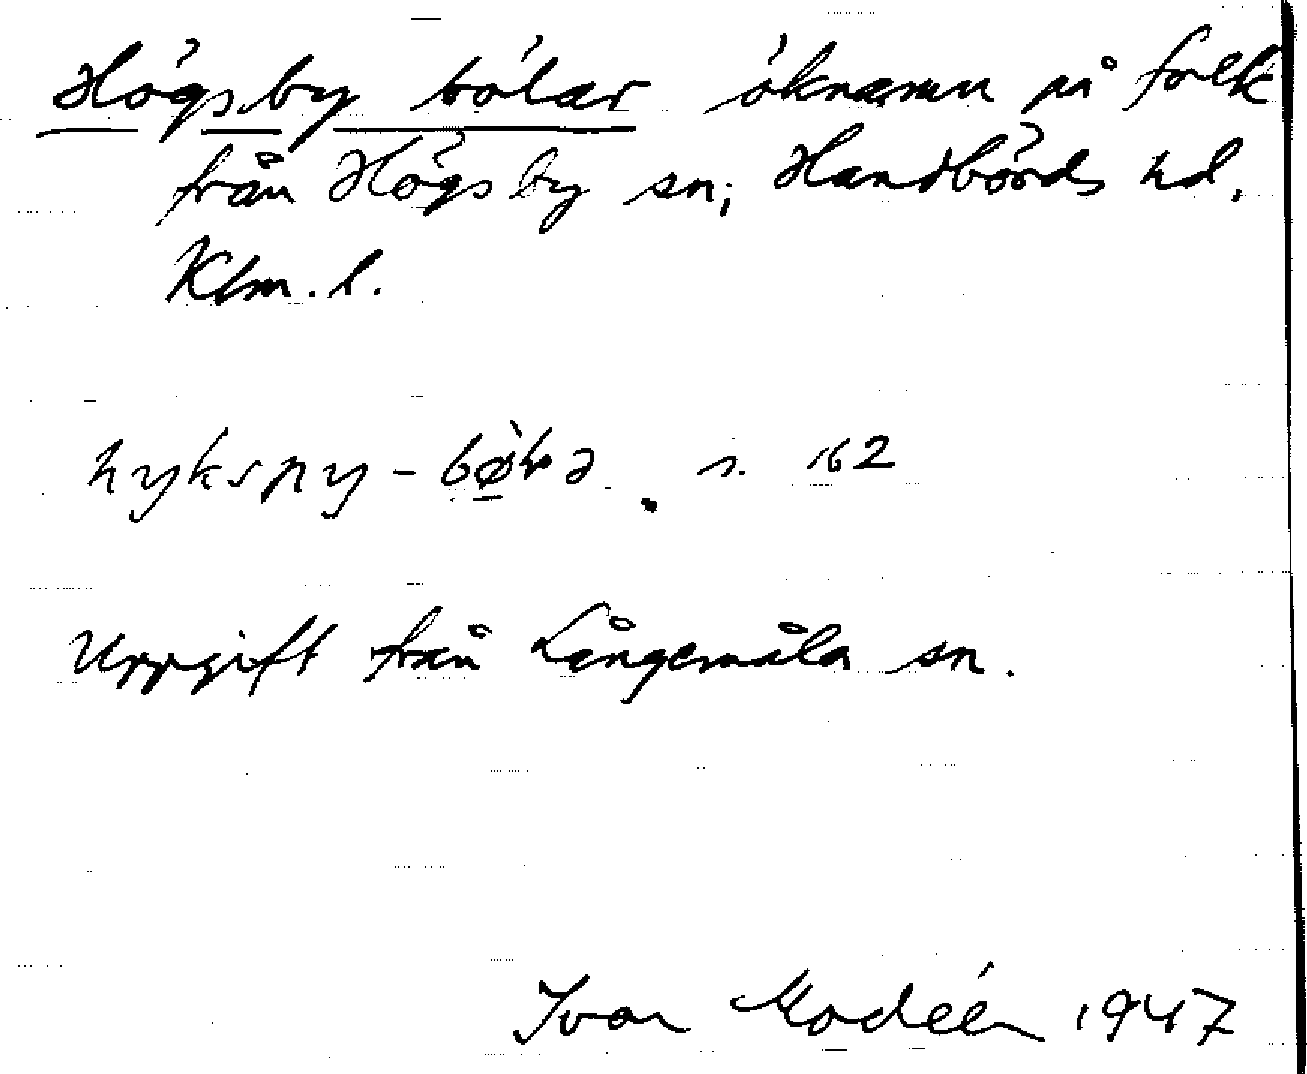 Högsby bölar öknamn på folk
från Högsby sn, Handbörds hd.
Klm. l.
s. 162
Uppgift från Långemåla sn.
Ivar Modéer 1947